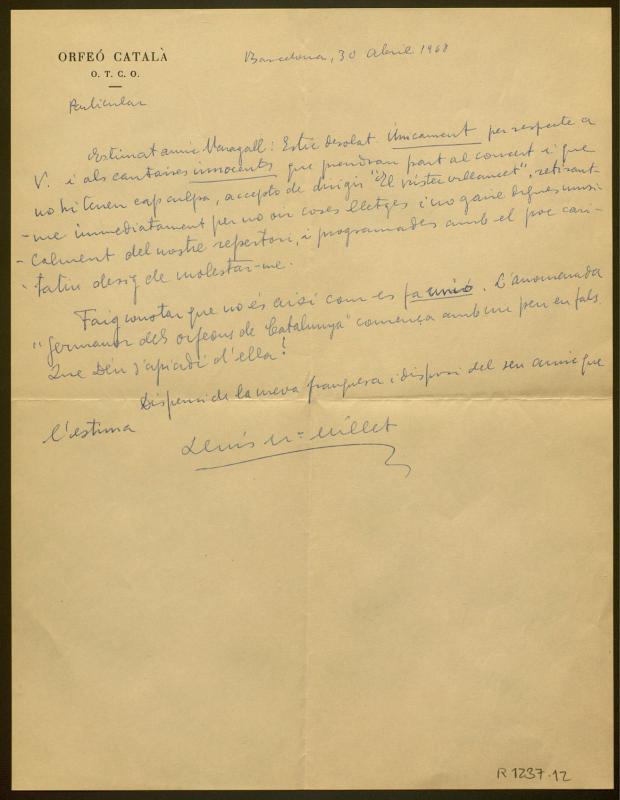 ORFEÓ CATALÀ
O. T. C. O.
Barcelona, 30 abril 1968
Particular
Estimat amic Maragall: Estic desolat. Únicament per respecte a
V. i als cantaires innocents que prendran part al concert i que
no hi tenen cap culpa, accepto de dirigir "El rústec villancet", retirant-
-me immediatament per no oir coses lletges i no gaire dignes musi-
-calment del nostre repertori, i programades amb el poc cari-
tatiu desig de molestar-me.
Faig constar que no és així com es fa unió. L'anomenada
"germanor dels orfeons de Catalunya" comença amb un peu en fals.
Que Déu s'apiadi d'ella!
Dispensi de la meva franquesa i disposi del seu amic que
l'estima
Lluís Mª Millet
R 1237.12